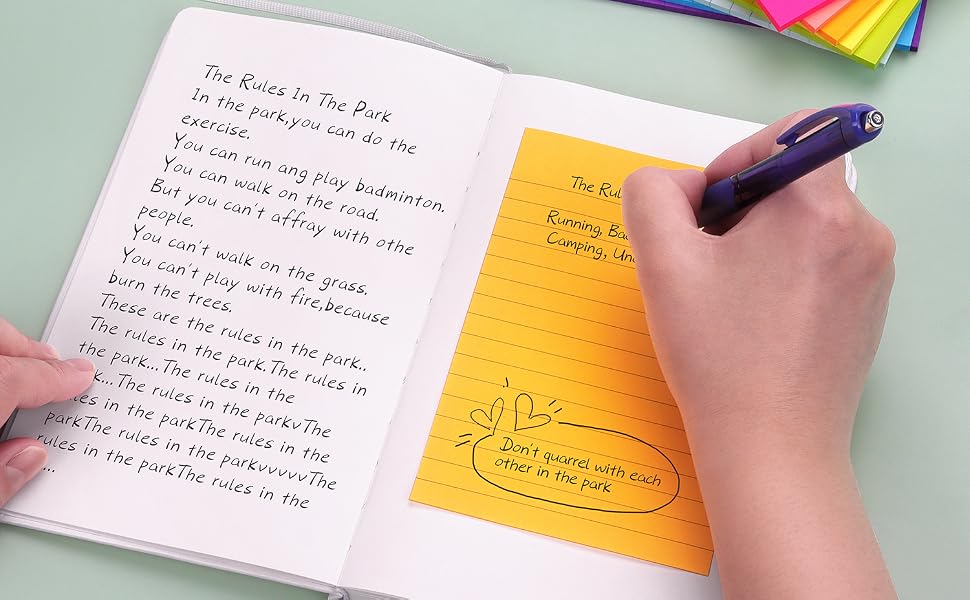 The Rules In The Park
In the park,you can do the
exercise.
You can run ang play badminton.
You can walk on the road.
But you can't affray with othe
people.
You can't walk on the grass.
You can't play with fire,because
burn the trees.
These are the rules in the park..
The rules in the park.The rules in
the park...The rules in the
k...The rules in the parkvThe
les in the parkThe rules in the
parkThe rules in the parkvvvvvThe
rules in the parkThe rules in the
...
The
Running,
Camping,
Don't quarrel with each
other in the park